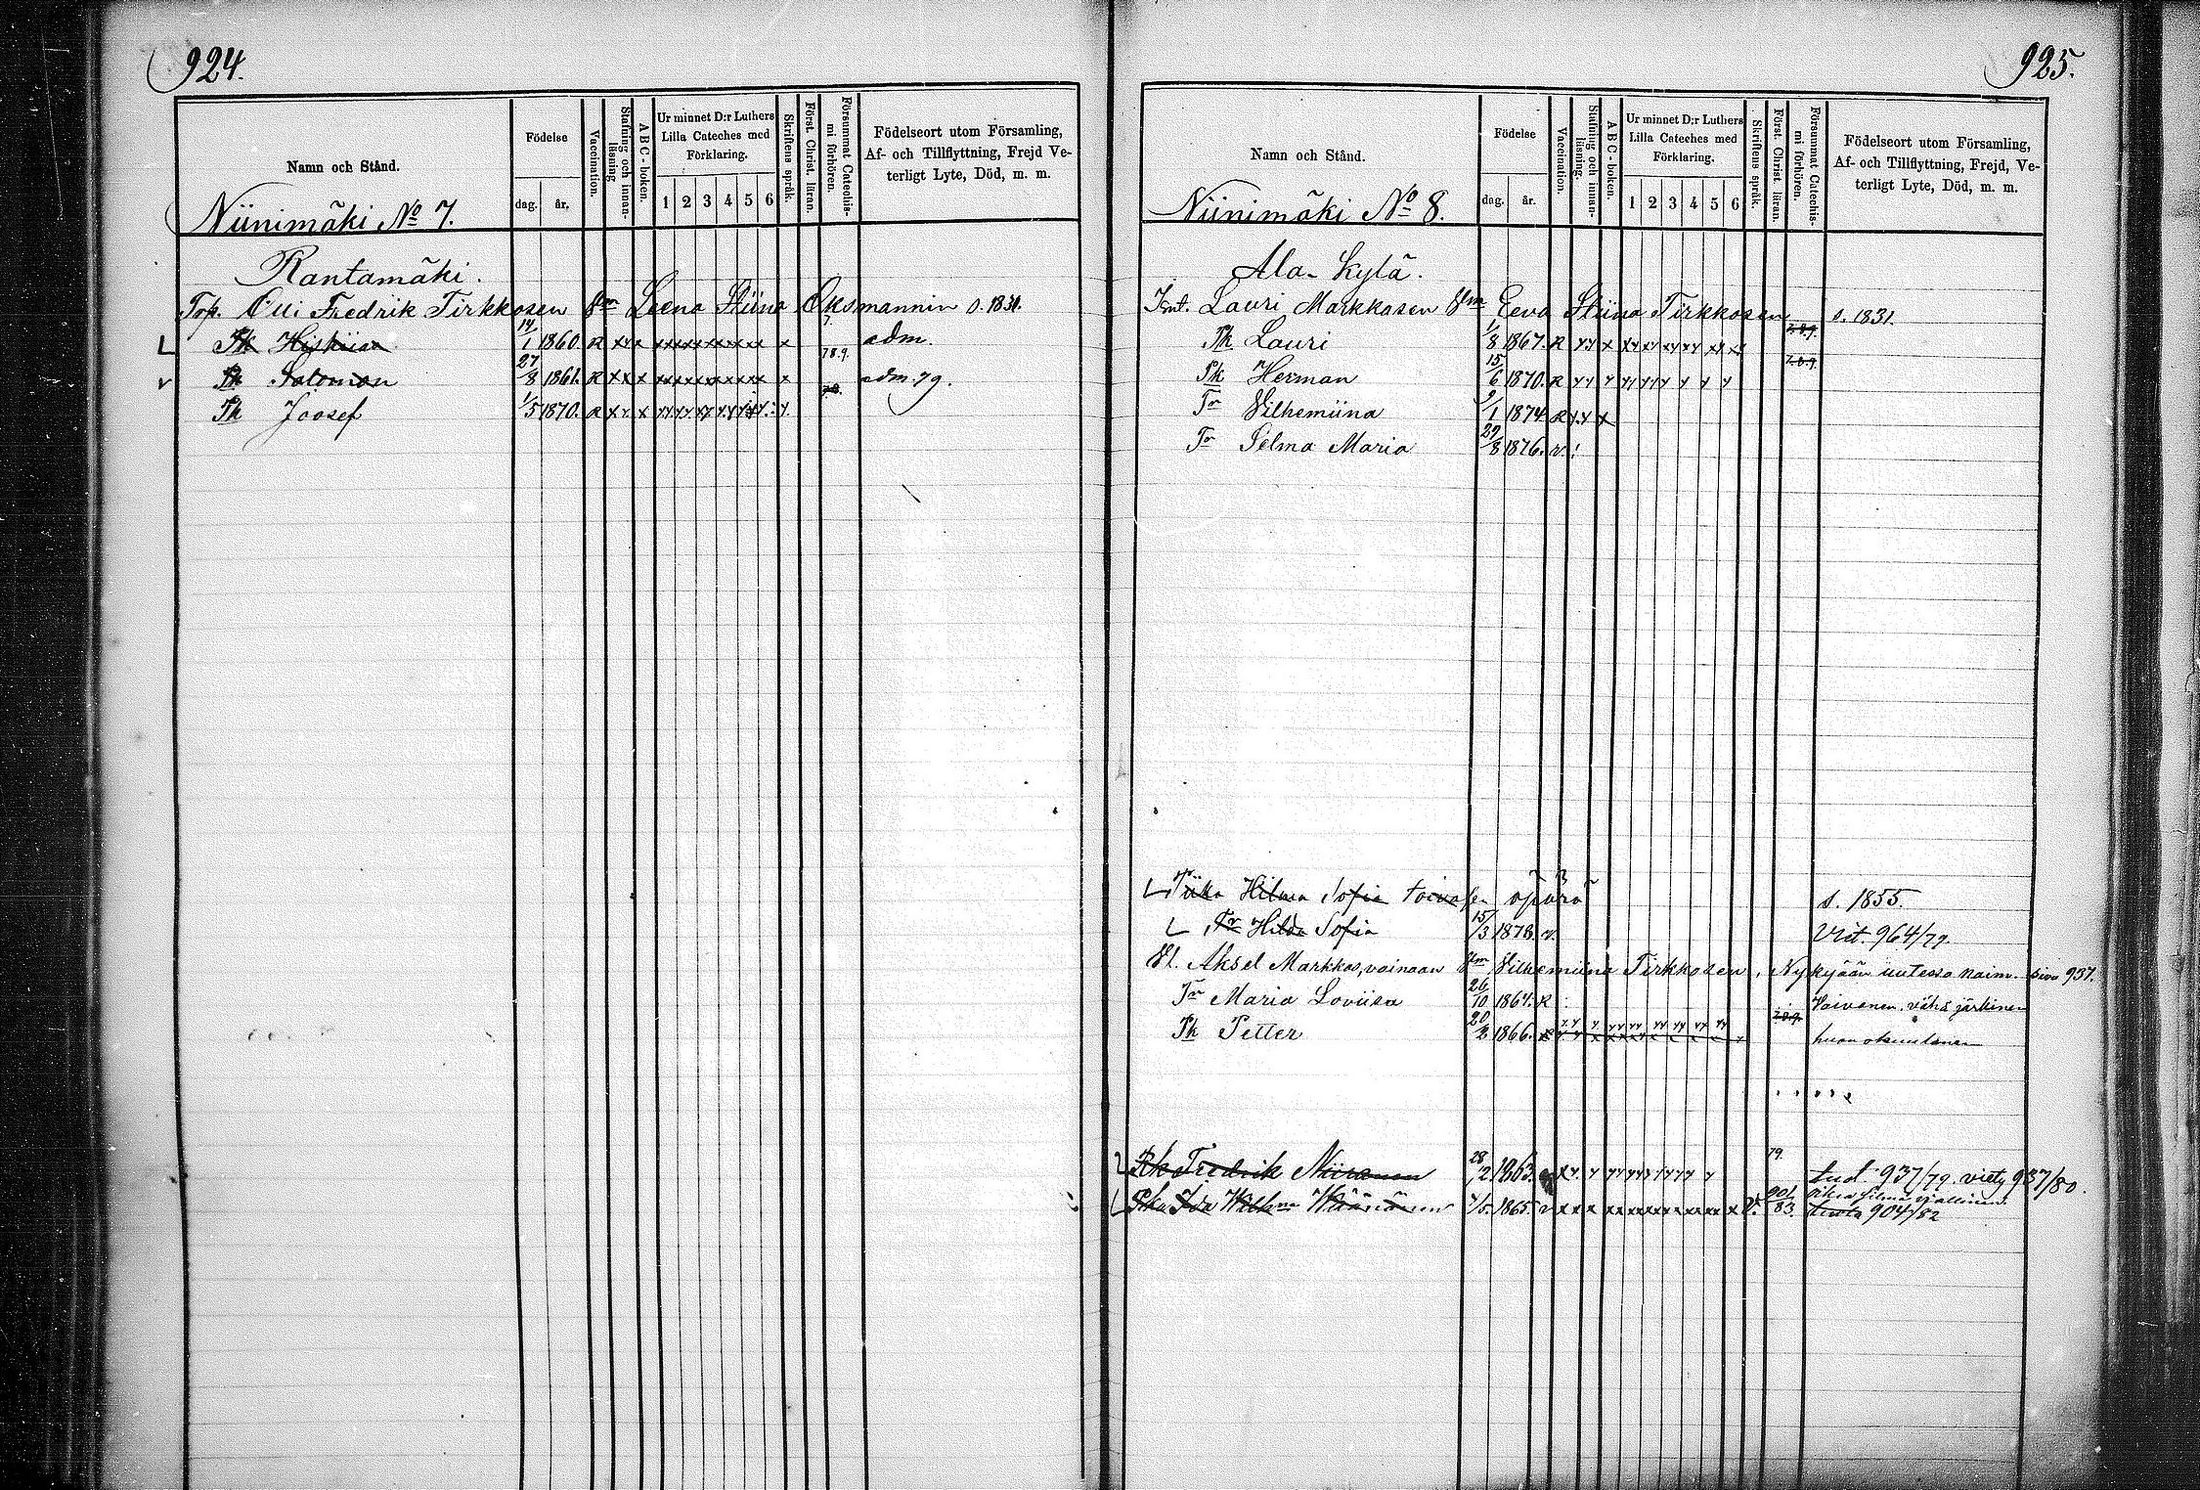 924.
Namn och Stånd.
Födelse
dag.
år.
Vaccination.
Stafning och innan-
läsning
A B C - boken.
Ur minnet D:r Luthers
Lilla Cateches med
Förklaring.
1 2 3 4 5 6
Skriftens språk.
Först. Christ. läran.
Försummat Catechis-
mi förhören.
Födelseort utom Församling,
Af- och Tillflyttning, Frejd Ve-
terligt Lyte, Död, m. m.
Niinimäki No 7.
Rantamäki.
Olli Fredrik Tirkkosen Leena Stiina Oksmannin s. 1831.
Pk Hiskias 14/1 1860. R x x x x x x x x x x x x x 7. adm.
Pk Salomon 27/8 1861. R x x x x x x x x x x x x x 7.8.9. adm. 79.
Pk Joosef 1/5 1870. R x x x
925.
Namn och Stånd.
Födelse
dag.
år.
Vaccination.
Stafning och innan-
läsning.
A B C - boken.
Ur minnet D:r Luthers
Lilla Cateches med
Förklaring.
1 2 3 4 5 6
Skriftens språk.
Först Christ läran.
Försummat Catechis-
mi förhören.
Födelseort utom Församling,
Af- och Tillflyttning, Frejd, Ve-
terligt Lyte, Död, m. m.
Niinimäki No 8.
Ala-Kylä.
Lauri Markkasen Eeva Stiina Tirkkosen s. 1831.
Pk Lauri 1/8 1867. R 7.8.9.
Pk Herman 15/6 1870. R 7.8.9.
Tr Vilhemiina 9/1 1874. R
Tr Selma Maria 29/8 1876. v.
Hilma Sofia äpärä s. 1855.
Tr Hilda Sofia 15/3 1878. v. 964/79.
Aksel Markkas, vainaan Vilhemiina Tirkkosen, Nykyään uutessa naim. sivu 937.
Tr Maria Loviisa 26/10 1864. R Vaivanen, vähä järkinen
Pk Petter 20/2 1866. 7.8.9.
Fredrik Niiranen 28/2 1863. 79. tud. 937/79. viety 937/80.
Ida 4/5 1865. v 83. 904/82